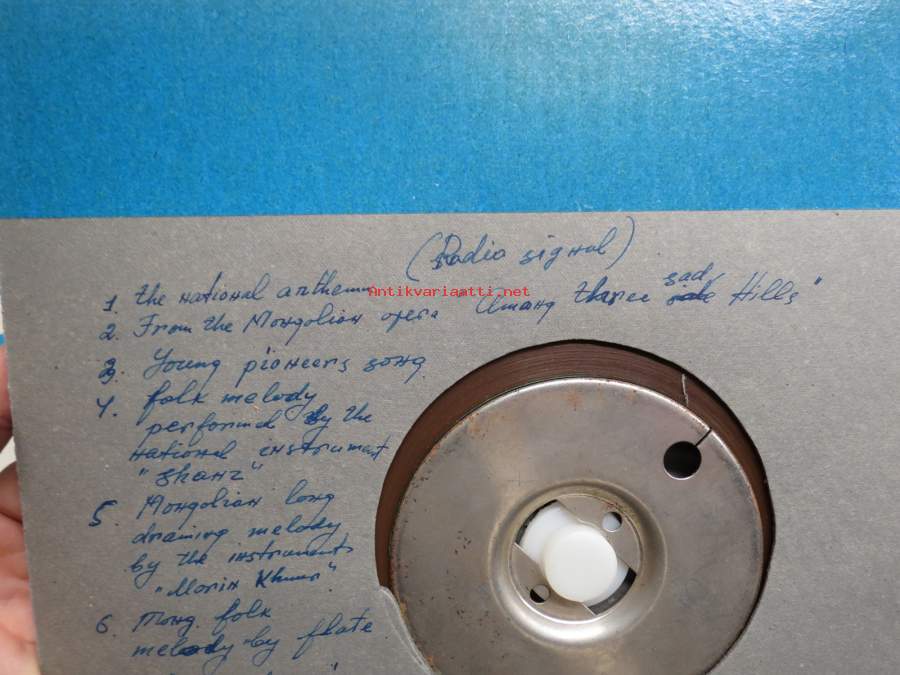 (Radio signal)
1. the national anthem
Antikvariaatti.net
2. From the Mongolian opera "Among three sad Hills"
3. Young pioneers song
4. folk melody
performed by the
national instrument
"Shanz"
5. Mongolian long
draming melody
by the instrument
"Morin Khuur"
6. Mong. folk
melody by flute